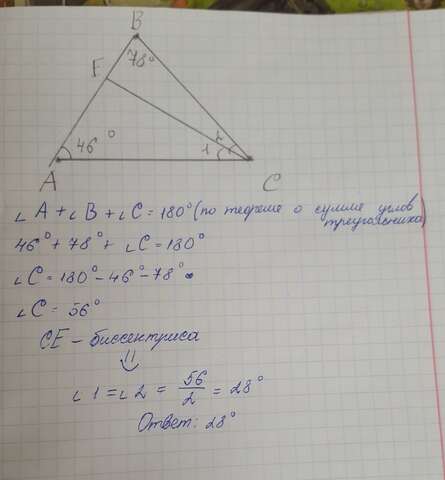 B
E
78°
2
1
46°
A
C
∠A + ∠B + ∠C = 180° (по теореме о сумме углов
треугольника)
46° + 78° + ∠C = 180°
∠C = 180° - 46° - 78°
∠C = 56°
CE - биссентриса
⇓
∠1 = ∠2 = 56/2 = 28°
Ответ: 28°